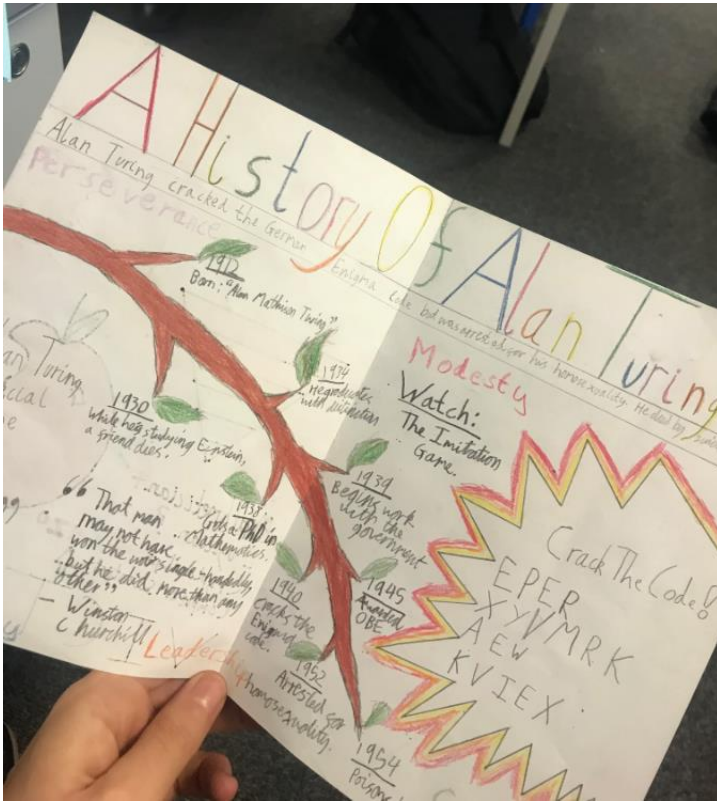 A History Of Alan Turing
Alan Turing cracked the German Enigma code but was arrested for his homosexuality. He died by
Perseverance
1912
Born: "Alan Mathison Turing"
1934
He graduates
with distinction
1930
While he is studying Einstein,
a friend dies.
1938
Gets a PhD in
Mathematics.
1939
Begins work
with the
government
1940
Cracks the
Enigma
code.
1945
Awarded
OBE
1952
Arrested for
homosexuality.
1954
Turing
"That man
may not have
won the war single-handedly
but he did more than any
other"
- Winston
Churchill
Leadership
Modesty
Watch:
The Imitation
Game.
Crack The Code!
EPER
XYVMRK
AEW
KVIEX